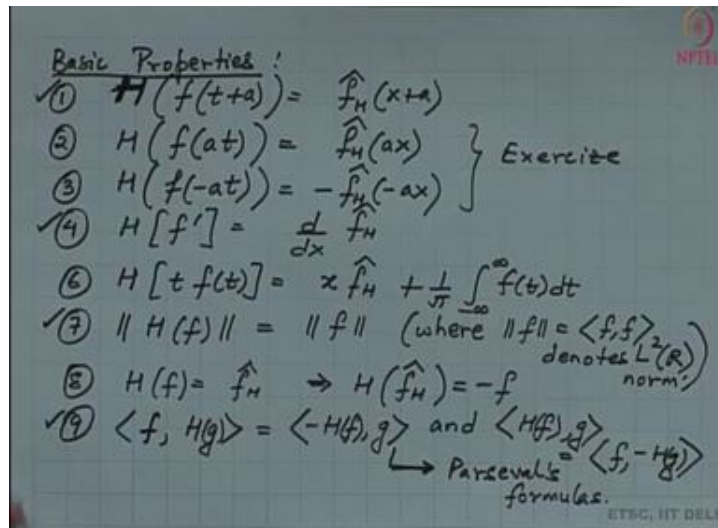 NPTEL
Basic Properties :
✓① H(f(t+a)) = f̂_H(x+a)
② H(f(at)) = f̂_H(ax)
③ H(f(-at)) = -f̂_H(-ax) } Exercise
✓④ H[f'] = d/dx f̂_H
⑥ H[t f(t)] = x f̂_H + 1/π ∫_{-∞}^{∞} f(t)dt
✓⑦ || H(f) || = || f || (where || f || = <f,f>
denotes L²(R)
norm.)
⑧ H(f) = f̂_H ⇒ H(f̂_H) = -f
✓⑨ <f, H(g)> = <-H(f), g> and <H(f), g>
= <f, -Hg>
↳ Parseval's
formulas.
ETSC, IIT DELHI